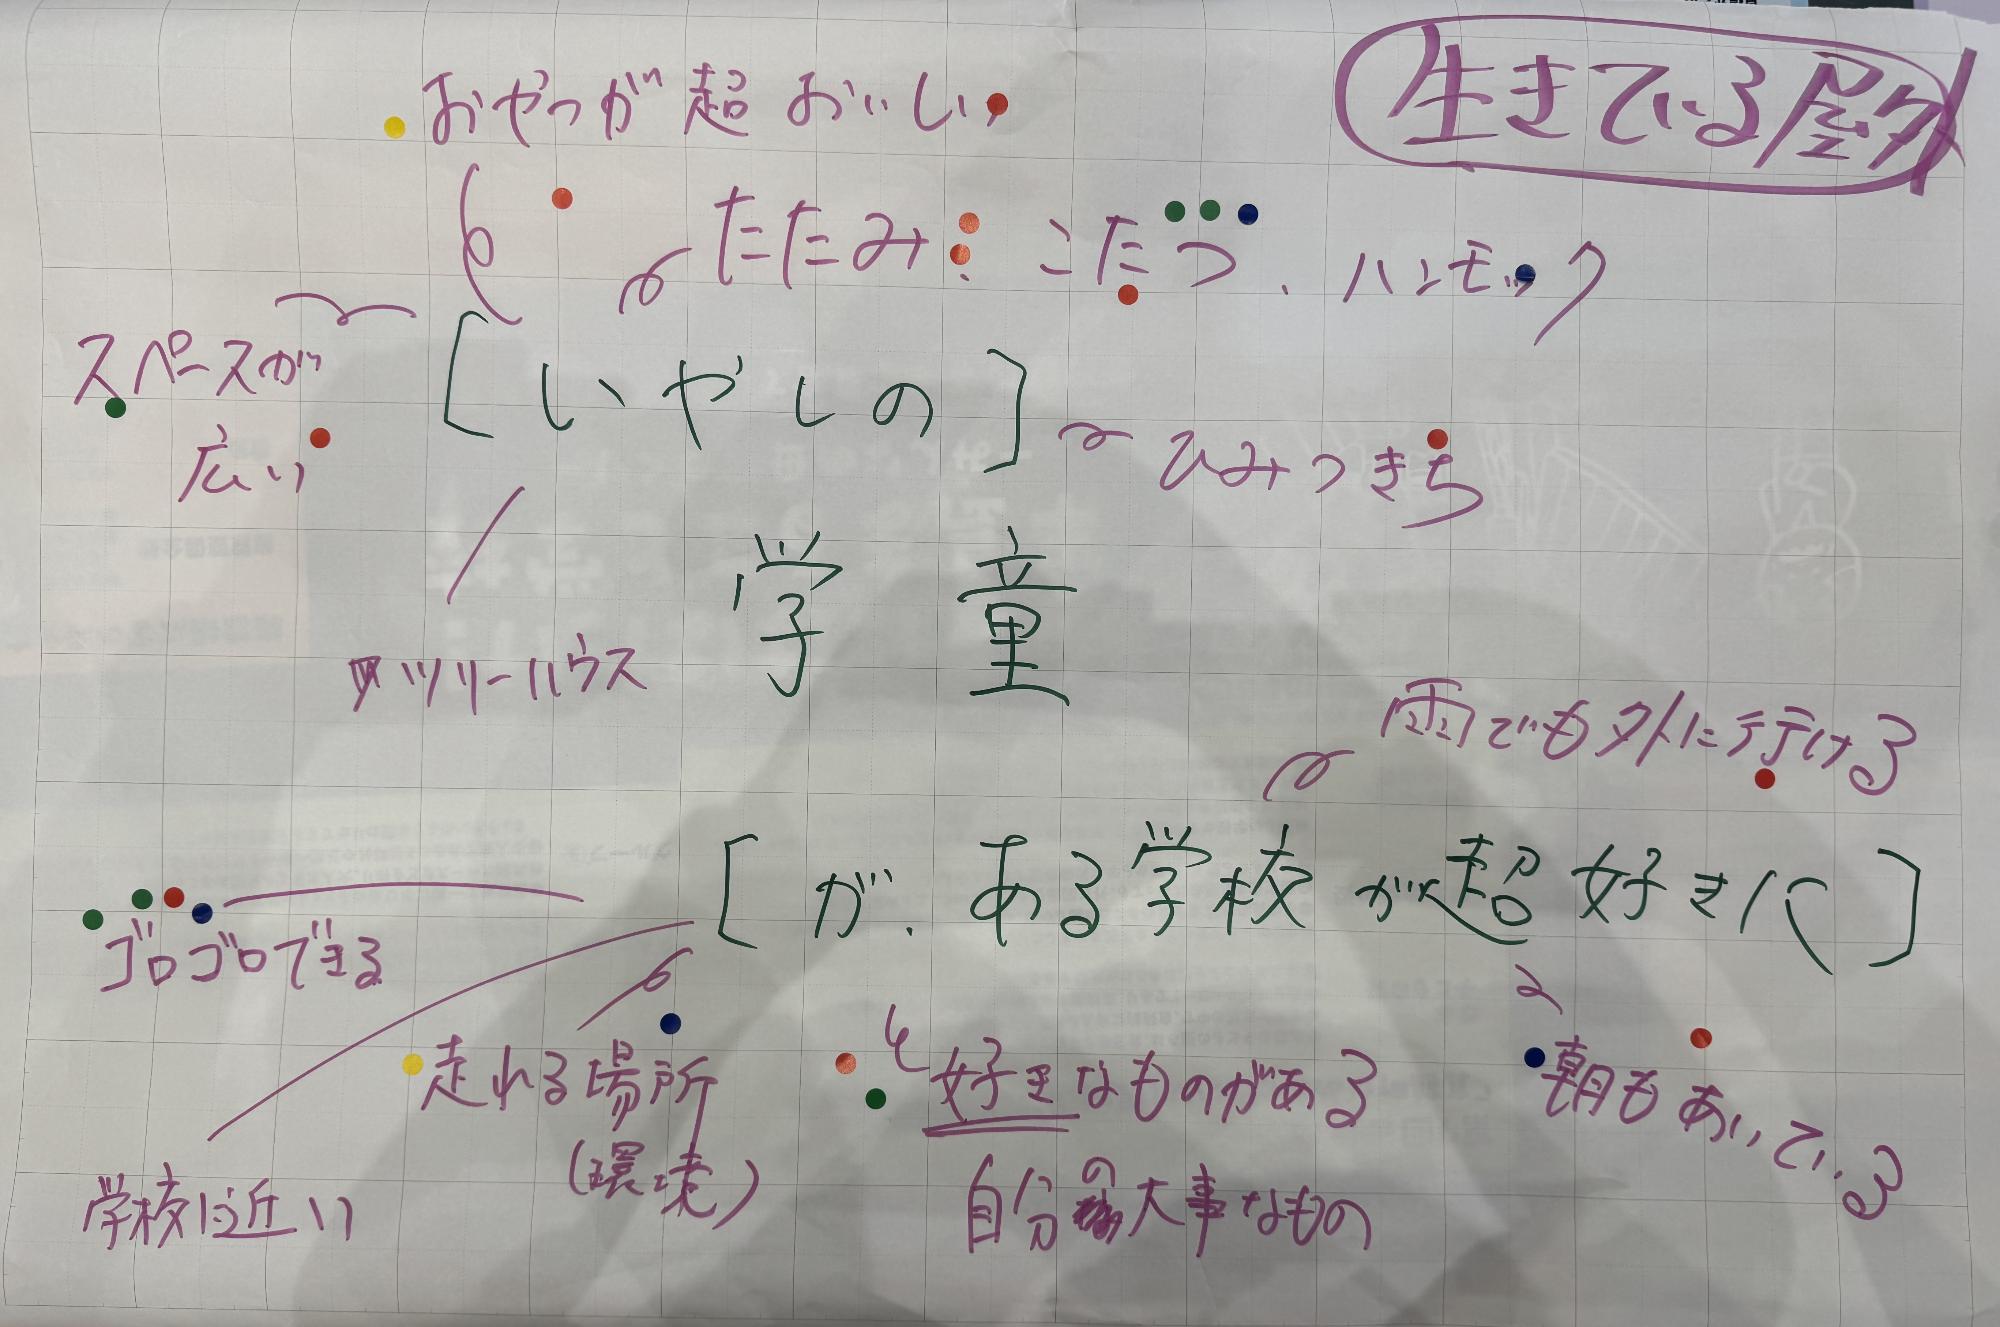 生きている
おやつが超おいしい
たたみ、こたつ、ハンモック
スペースが
広い
[いやしの]
ひみつきち
学童
ツリーハウス
雨でも外に行ける
[が、ある学校が超好き]
ゴロゴロできる
走れる場所
(環境)
好きなものがある
自分の大事なもの
朝もあいている
学校に近い